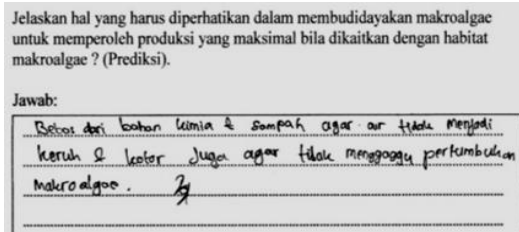 Jelaskan hal yang harus diperhatikan dalam membudidayakan makroalgae
untuk memperoleh produksi yang maksimal bila dikaitkan dengan habitat
makroalgae ? (Prediksi).
Jawab:
Bebas dari bahan kimia & sampah agar air tidak menjadi
keruh & kotor juga agar tidak mengganggu pertumbuhan
makroalgae.